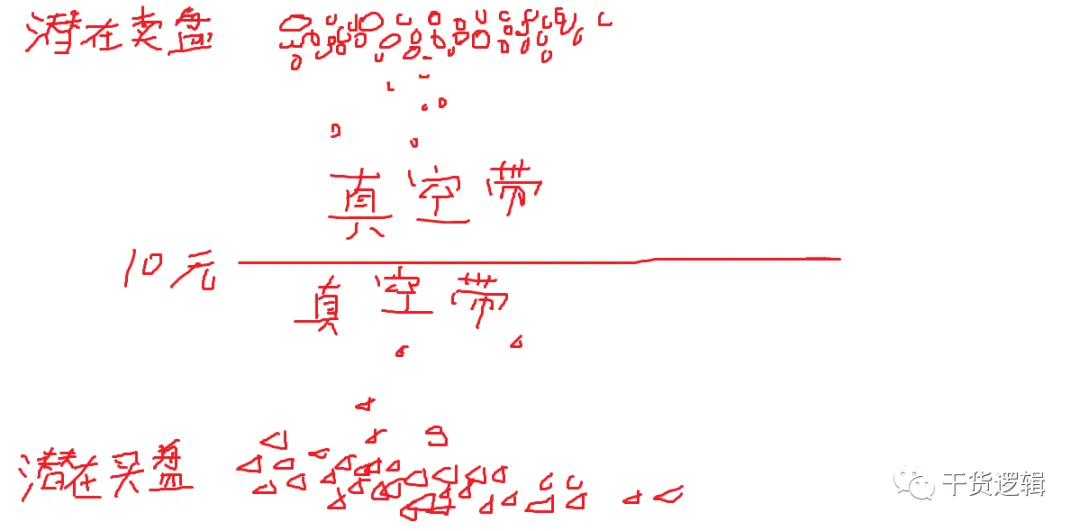 潜在卖盘
真空带
10元
真空带
潜在买盘
干货逻辑